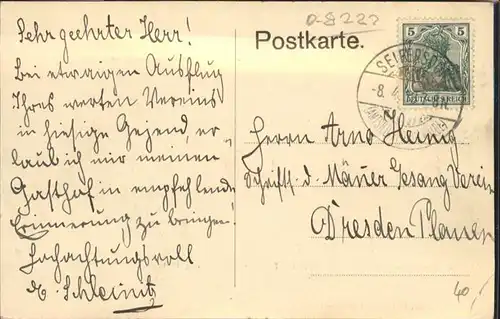 Sehr geehrter Herr!
Bei etwaigen Ausflug
Ihres werten Vereins
in hiesige Gegend, er
laub ich mir meinen
Gasthof in empfehlende
Erinnerung zu bringen!
Hochachtungsvoll
E. Schleinitz
D-8222
Postkarte.
5 5
DEUTSCHES REICH
SEIFERSDORF
-8.
Herrn Arno Heinig
Schriftf. d. Männer Gesang Verein
Dresden Plauen
40,